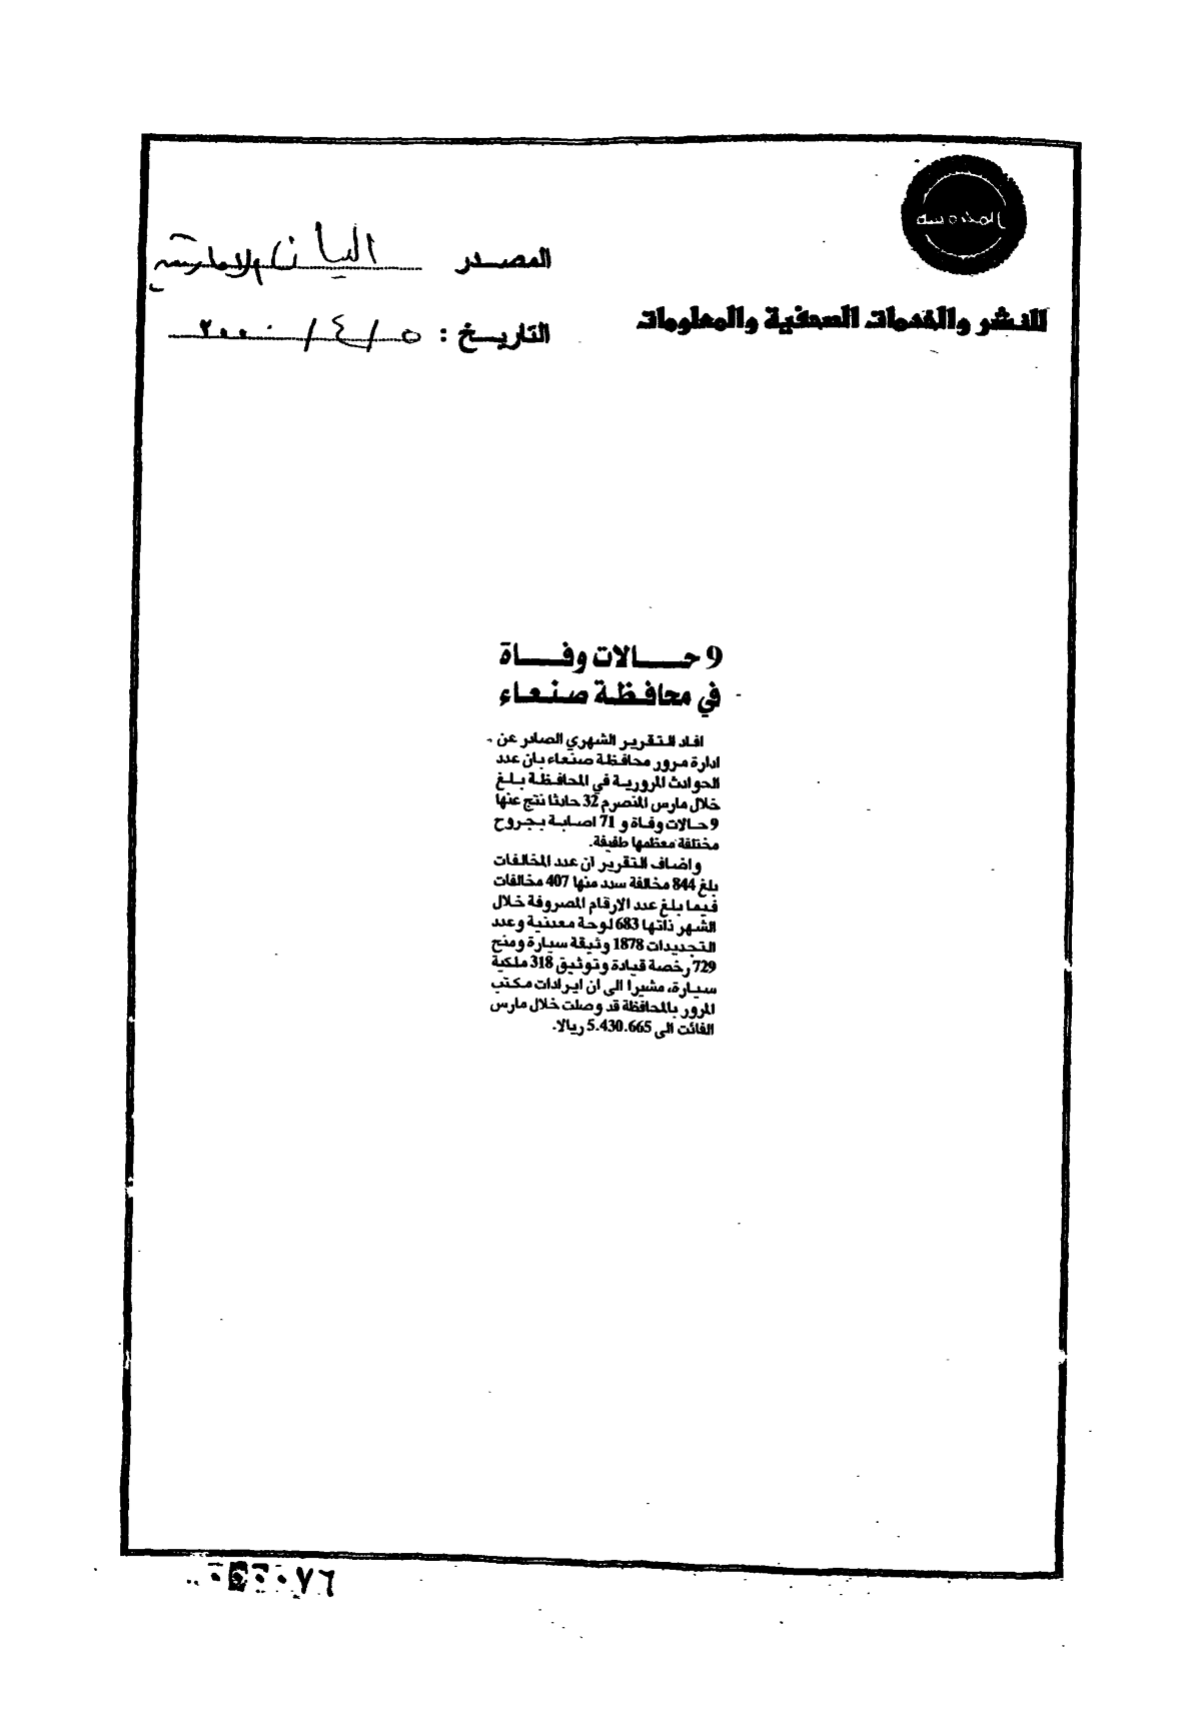 المحروسة
للنشر والخدمات الصحفية والمعلومات
المصدر البيان الاماراتية
التاريخ : ٥ / ٤ / ٢٠٠٠
9 حالات وفاة
في محافظة صنعاء
افاد التقرير الشهري الصادر عن
ادارة مرور محافظة صنعاء بان عدد
الحوادث المرورية في المحافظة بلغ
خلال مارس المنصرم 32 حادثا نتج عنها
9 حالات وفاة و 71 اصابة بجروح
مختلفة معظمها طفيفة.
واضاف التقرير ان عدد المخالفات
بلغ 844 مخالفة سدد منها 407 مخالفات
فيما بلغ عدد الارقام المصروفة خلال
الشهر ذاتها 683 لوحة معدنية وعدد
التجديدات 1878 وثيقة سيارة ومنح
729 رخصة قيادة وتوثيق 318 ملكية
سيارة، مشيرا الى ان ايرادات مكتب
المرور بالمحافظة قد وصلت خلال مارس
الفائت الى 5.430.665 ريالا.